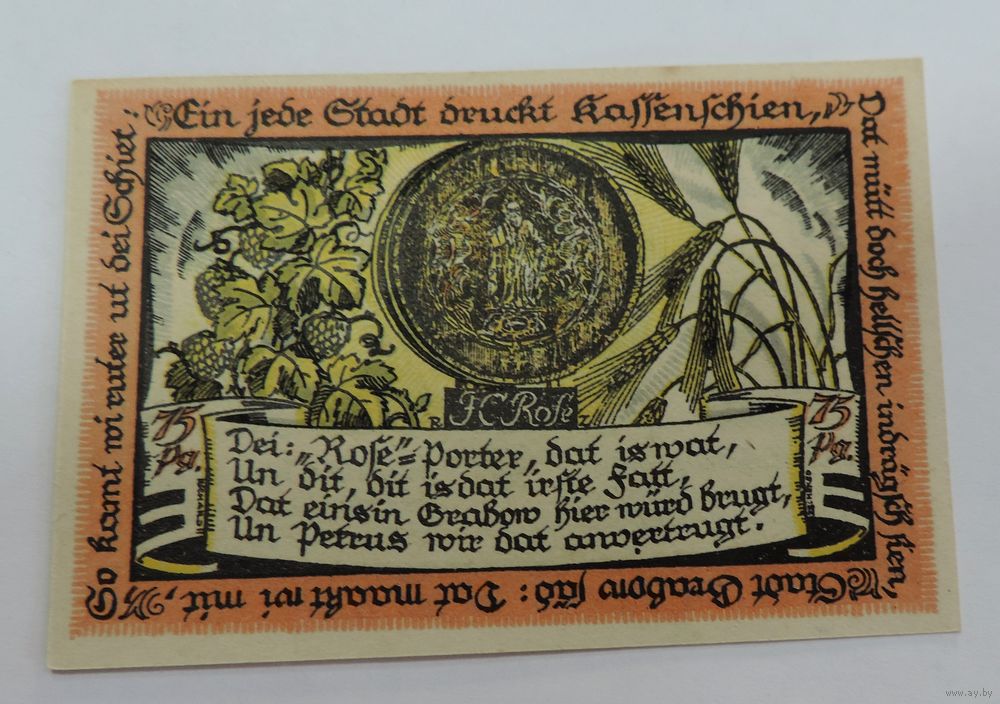 Ein jede Stadt druckt Kassenschien,
Dat mütt doch hellschen indrägsch sien,
Stadt Grabow säd: Dat maakt wi mit,
So kamt wi ruter ut dei Schiet!
75
Pg.
75
Pg.
J C Rose
Dei: „Rose"=Porter, dat is wat,
Un dit, dit is dat irste Fatt,
Dat eins in Grabow hier würd brugt,
Un Petrus wir dat anvertrugt.
www.ay.by